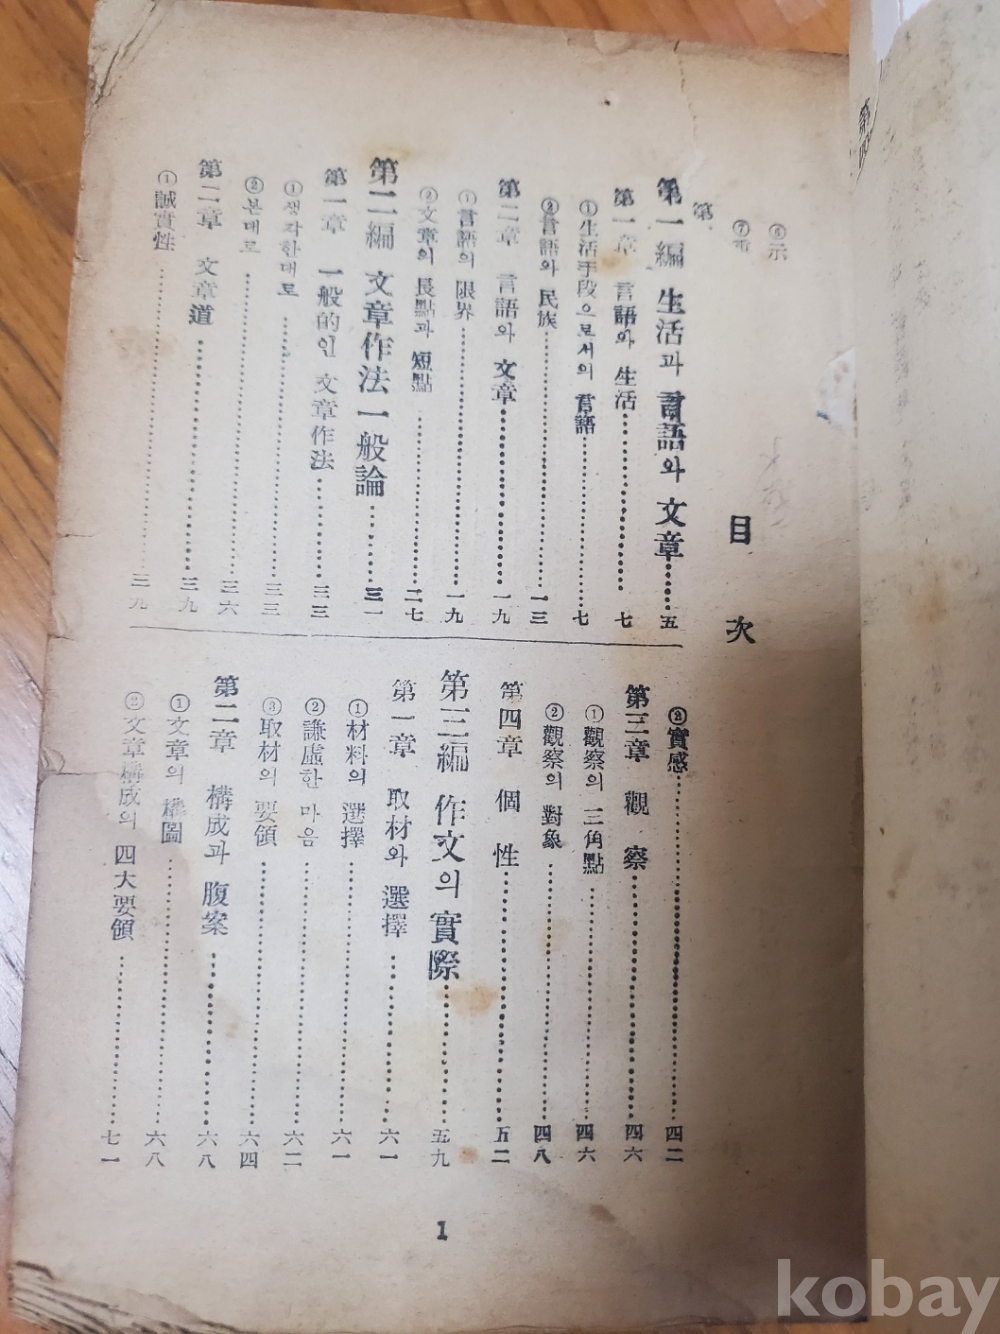 目 次
第一編 生活과 言語와 文章 五
第一章 言語와 生活 七
①生活手段으로서의 言語 七
②言語와 民族 一三
第二章 言語와 文章 一九
①言語의 限界 一九
②文章의 長點과 短點 二七
第二編 文章作法一般論 三一
第一章 一般的인 文章作法 三三
①생각한대로 三三
②본대로 三六
第二章 文章道 三九
①誠實性 三九
②實感 四二
第三章 觀察 四六
①觀察의 三角點 四六
②觀察의 對象 四八
第四章 個性 五二
第三編 作文의 實際 五九
第一章 取材와 選擇 六一
①材料의 選擇 六一
②謙虛한 마음 六二
③取材의 要領 六四
第二章 構成과 腹案 六八
①文章의 構圖 六八
②文章構成의 四大要領 七一
1
⑥示
⑦
第
kobay